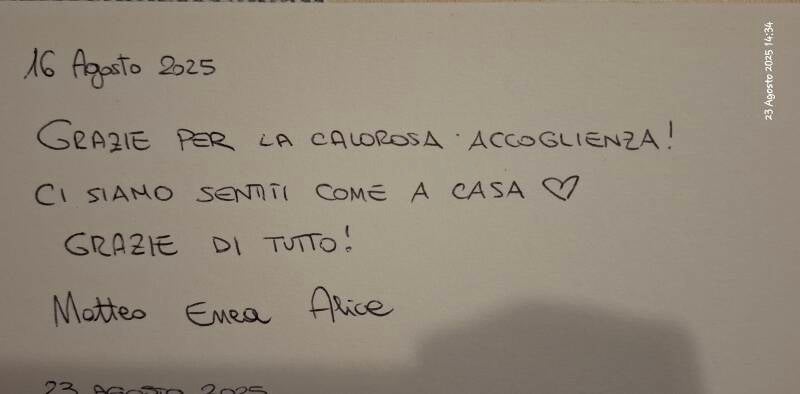 16 Agosto 2025
GRAZIE PER LA CALOROSA ACCOGLIENZA!
CI SIAMO SENTITI COME A CASA ♡
GRAZIE DI TUTTO!
Matteo Enea Alice
23 AGOSTO 2025
23 Agosto 2025 14:34